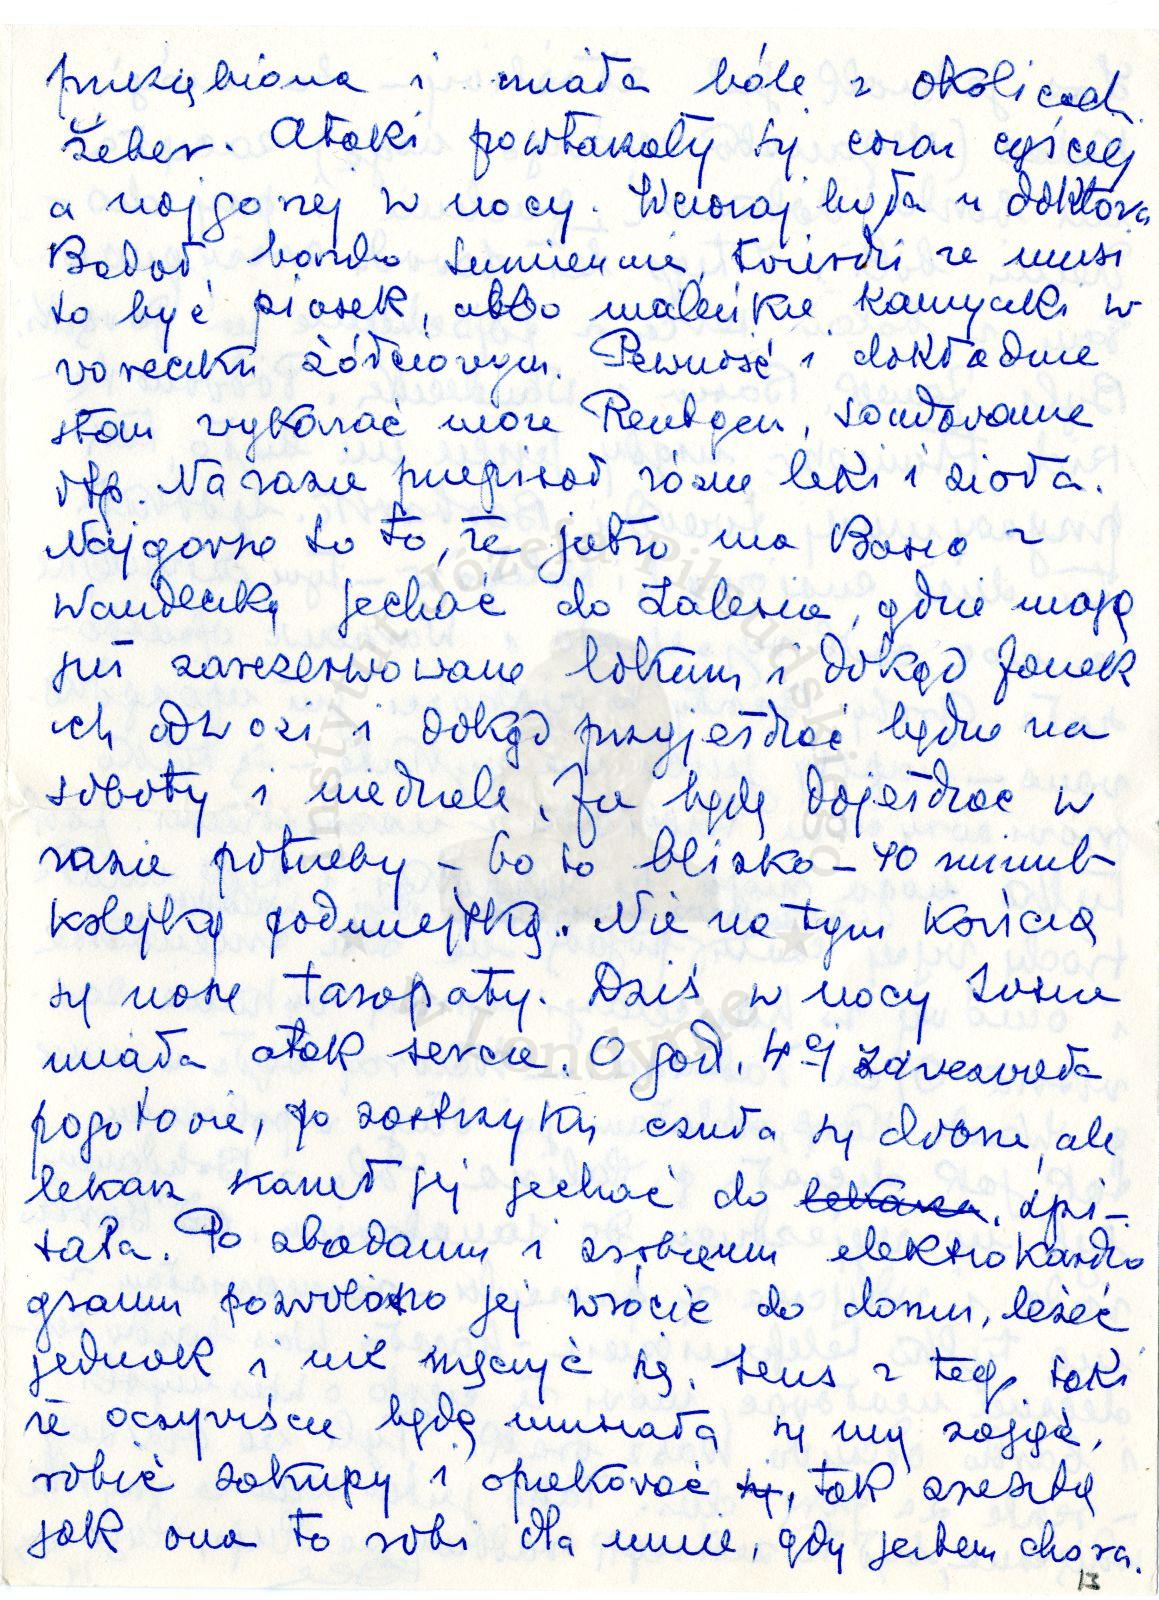 przeziębiona i miała bóle w okolicach
żeber. Ataki powtarzały się coraz częściej
a najgorzej w nocy. Wczoraj była u doktora
Badał bardzo sumiennie, twierdzi że musi
to być piasek, albo maleńkie kamyczki w
woreczku żółciowym. Pewność i dokładnie
stan wykazać może Rentgen, sondowanie
itp. Na razie przepisał różne leki i zioła.
Najgorsze to to, że jutro ma Basia z
Wandeczką jechać do Zalesia, gdzie mają
już zarezerwowane lokum i dokąd Janek
ich odwozi i dokąd przyjeżdżać będzie na
soboty i niedziele. Ja będę dojeżdżać w
razie potrzeby – bo to blisko – 40 minut
kolejką podmiejską. Nie na tym kończą
się nasze tarapaty. Dziś w nocy
miała atak serca. O god. 4ej zawezwała
pogotowie, po zastrzyku czuła się dobrze, ale
lekarz kazał jej jechać do lekarza, szpi-
tala. Po zbadaniu i zrobieniu elektrokardio
gramu pozwolono jej wrócić do domu, leżeć
jednak i nie męczyć się. Sens z tego taki
że oczywiście będę musiała się nią zająć,
robić zakupy i opiekować się, tak zresztą
jak ona to robi dla mnie, gdy jestem chora.
13
Instytut Józefa Piłsudskiego
w Londynie